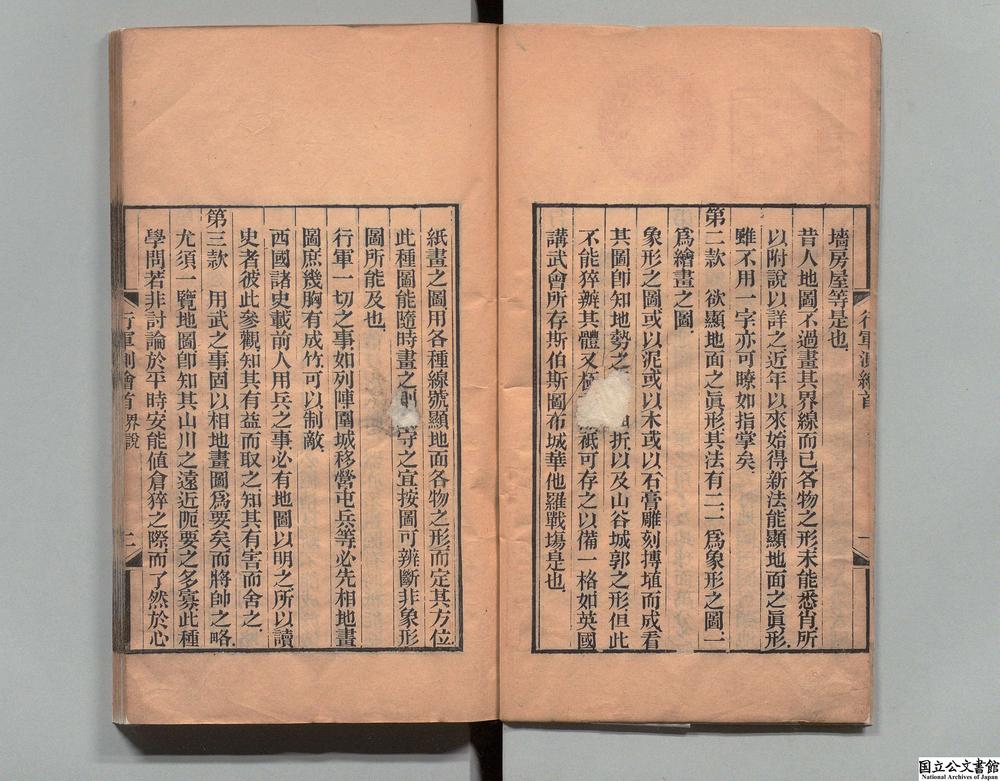 墻房屋等是也
昔人地圖不過畫其界線而已各物之形未能悉肖所
以附說以詳之近年以來始得新法能顯地面之眞形
雖不用一字亦可瞭如指掌矣
第二款　欲顯地面之眞形其法有二一爲象形之圖一
爲繪畫之圖
象形之圖或以泥或以木或以石膏雕刻摶埴而成看
其圖卽知地勢之折以及山谷城郭之形但此
不能猝辨其體又祇可存之以備一格如英國
講武會所存斯伯斯圖布城華他羅戰塲是也
行軍測繪首
一
紙畫之圖用各種線號顯地面各物之形而定其方位
此種圖能隨時畫之守之宜按圖可辨斷非象形
圖所能及也
行軍一切之事如列陣圍城移營屯兵等必先相地畫
圖庶幾胸有成竹可以制敵
西國諸史載前人用兵之事必有地圖以明之所以讀
史者彼此參觀知其有益而取之知其有害而舍之
第三款　用武之事固以相地畫圖爲要矣而將帥之略
尤須一覽地圖卽知其山川之遠近阨要之多寡此種
學問若非討論於平時安能值倉猝之際而了然於心
行軍測繪首　界說
二
国立公文書館
National Archives of Japan